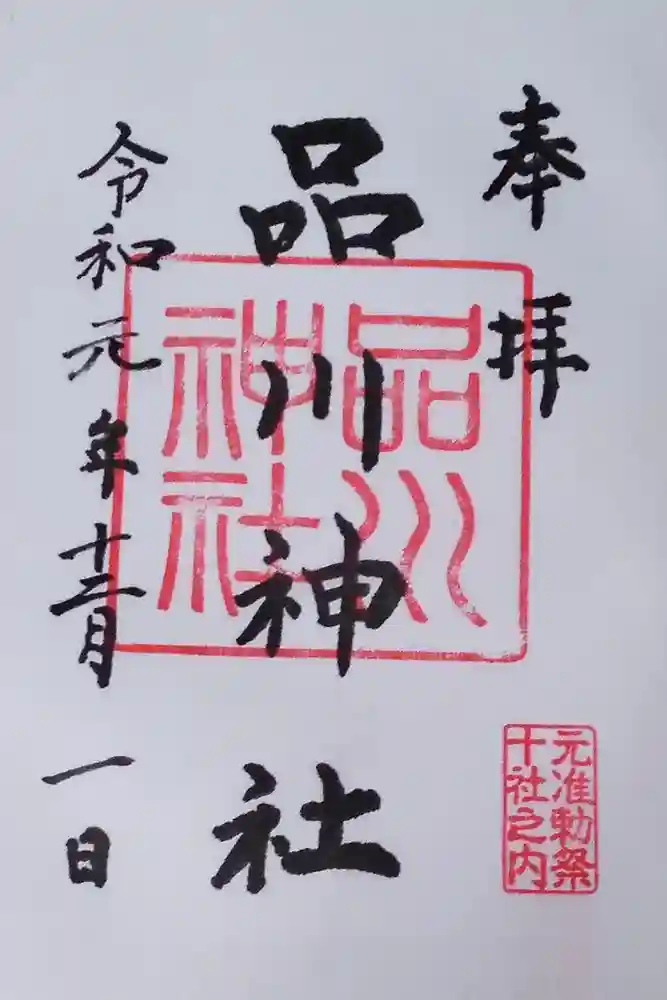 奉拝
品川神社
令和元年十二月一日
品川
神社
元准勅祭
十社之内